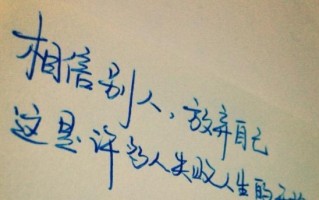 相信别人，放弃自己
这是许多人失败人生的